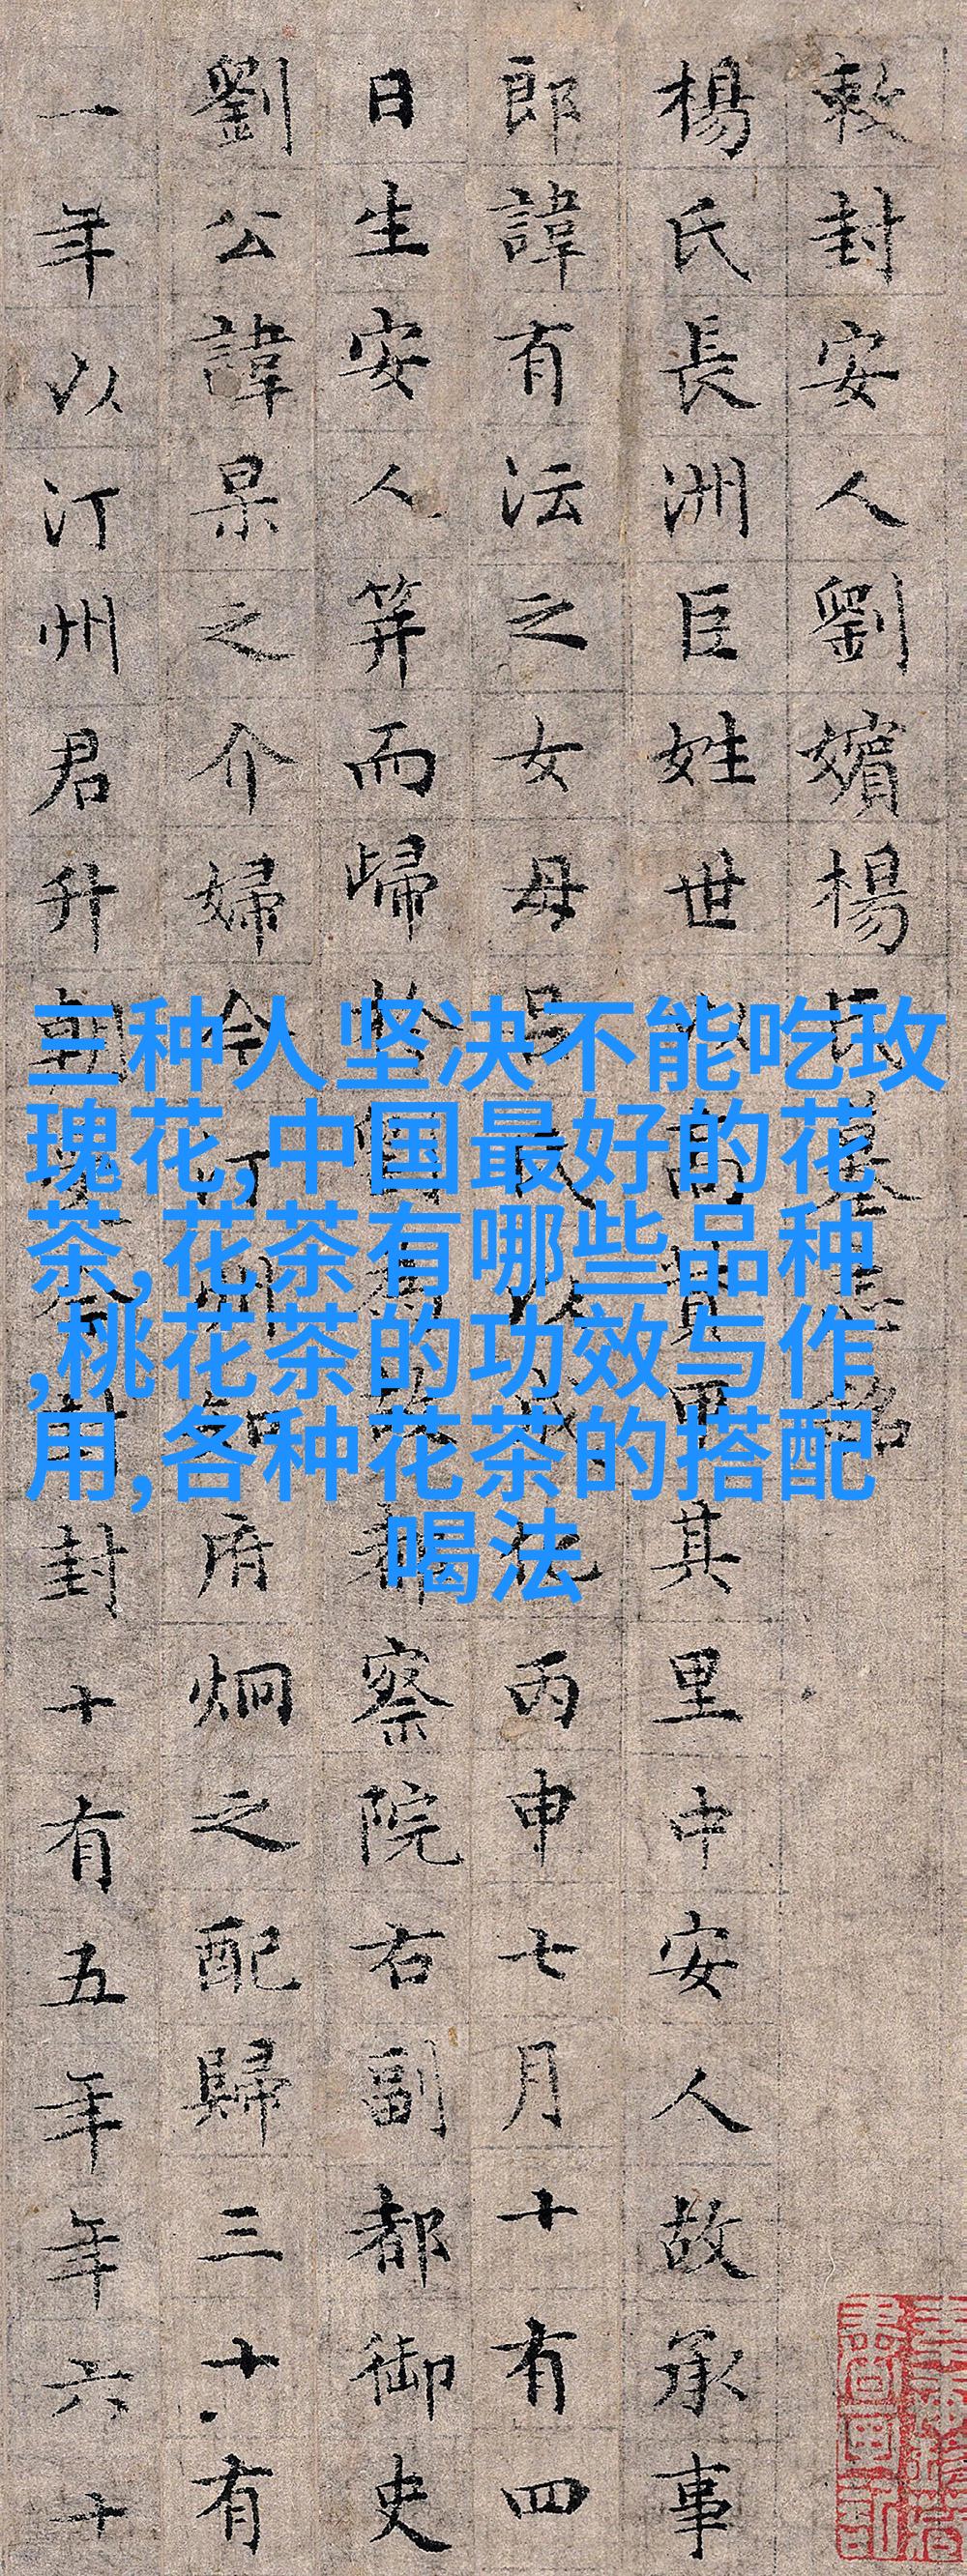 敕封安人劉嬪楊氏墓志銘
楊氏長洲巨姓世以高甲其里中安人故承事
郎諱有沄之女母吕氏以成化丙申七月十有四
日生安人筓而歸於為故都察院右副都御史
劉公諱杲之介婦今汀州知府炯之配歸三十有
一年以汀州君升朝今封封十有五年年六十
三种人坚决不能吃玫
瑰花,中国最好的花
茶,花茶有哪些品种
,桃花茶的功效与作
用,各种花茶的搭配
喝法